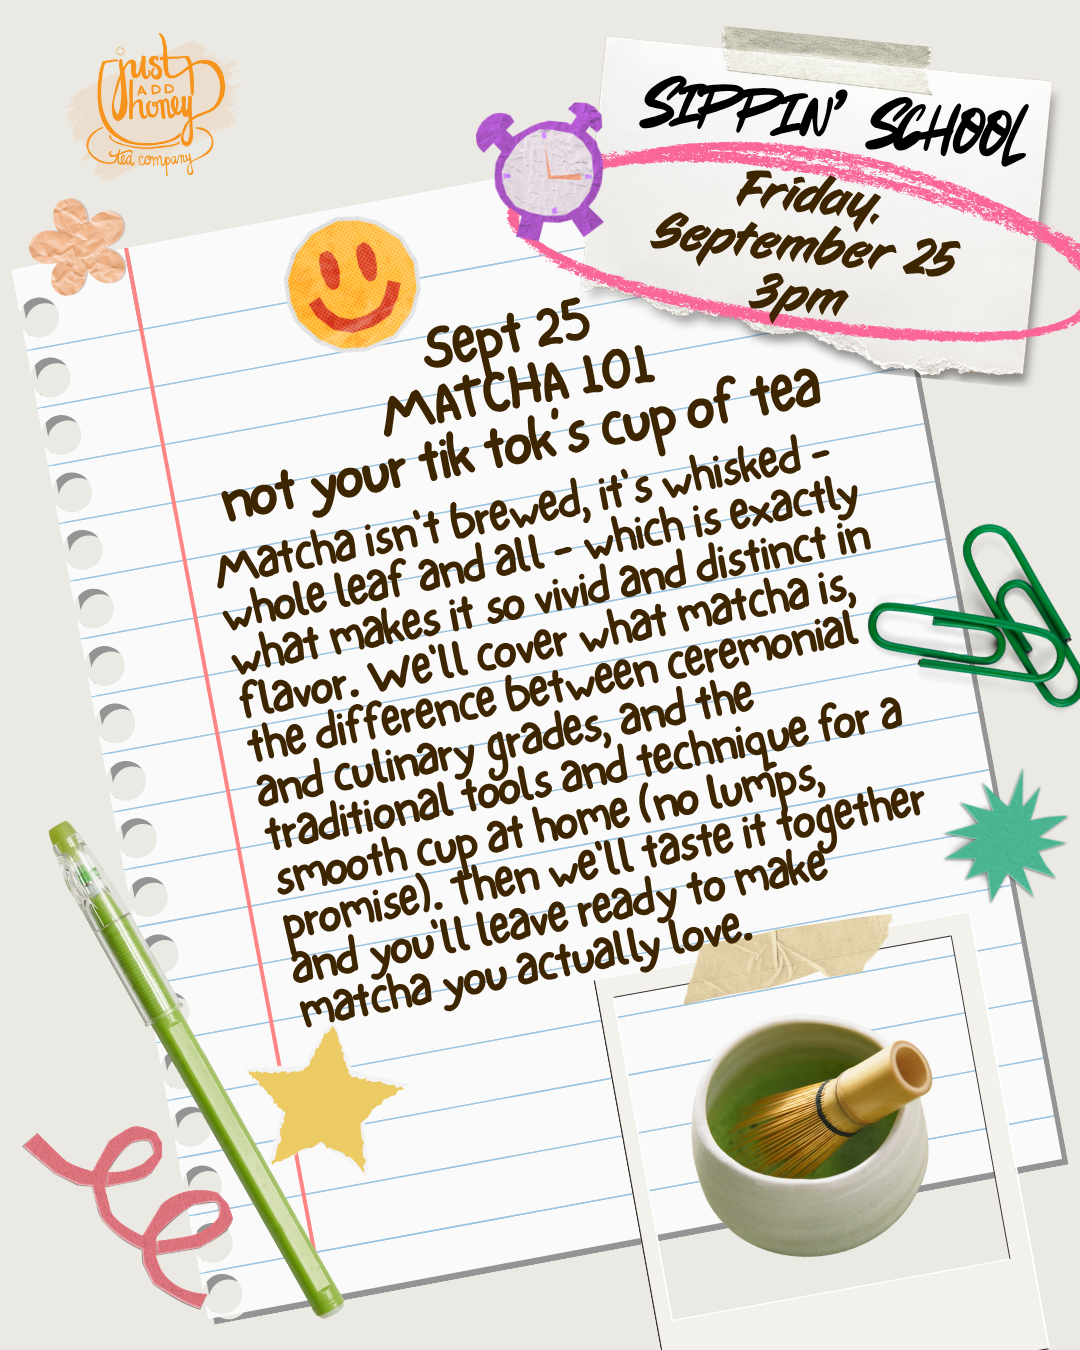 just
ADD
honey
tea company
SIPPIN' SCHOOL
Friday,
September 25
3pm
Sept 25
MATCHA 101
not your tik tok's cup of tea
Matcha isn't brewed, it's whisked -
whole leaf and all - which is exactly
what makes it so vivid and distinct in
flavor. We'll cover what matcha is,
the difference between ceremonial
and culinary grades, and the
traditional tools and technique for a
smooth cup at home (no lumps,
promise). Then we'll taste it together
and you'll leave ready to make
matcha you actually love.